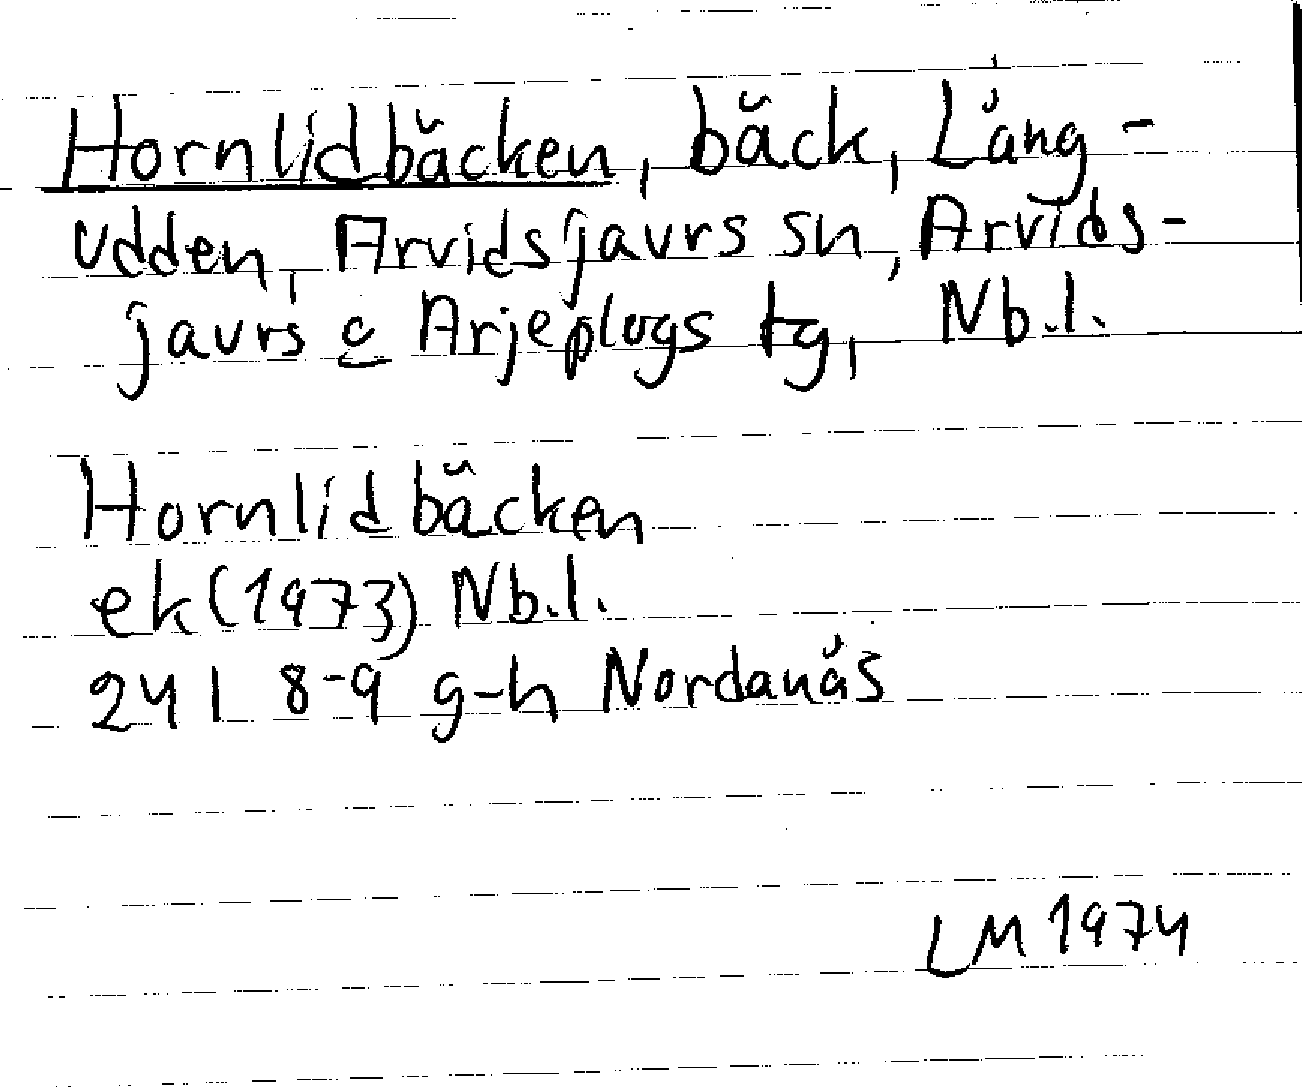 Hornlidbäcken, bäck, Lång-
udden, Arvidsjavrs sn, Arvids-
javrs o Arjeplogs tg, Nb.l.
Hornlidbäcken
ek(1973) Nb.l.
24I 8-9 g-h Nordanås
LM 1974